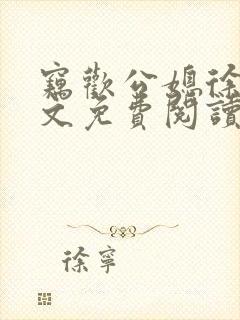 竊歡公媳徐
文免費閱讀
徐寧